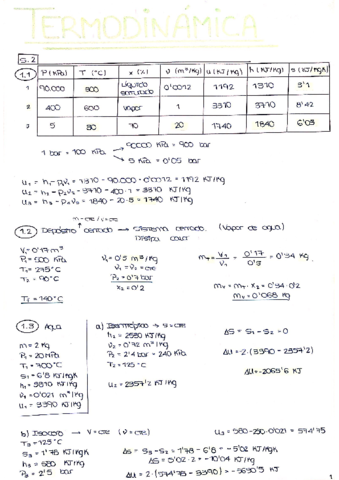 TERMODINÁMICA
S.2
1.1 P (kPa) T (°C) x (%) v (m³/kg) u (KJ/kg) h (KJ/kg) s (KJ/kgK)
1 90.000 300 líquido 0'0012 1192 1310 3'1
2 400 600 vapor 1 3310 3710 8'42
3 5 30 70 20 1740 1840 6'03
1 bar = 100 kPa → 90000 kPa = 900 bar
→ 5 kPa = 0'05 bar
u₁ = h₁ - p₁v₁ = 1310 - 90.000 · 0'0012 = 1192 KJ/kg
u₂ = h₂ - p₂v₂ = 3710 - 400 · 1 = 3310 KJ/kg
u₃ = h₃ - p₃v₃ = 1840 - 20 · 5 = 1740 KJ/kg
m = cte / v = cte
1.2 Depósito cerrado → sistema cerrado. (Vapor de agua)
V₁ = 0'17 m³
P₁ = 500 kPa
T₁ = 275 °C
T₂ = 90 °C
v₁ = 0'5 m³/kg
v₁ = v₂ = cte
P₂ = 0'7 bar
x₂ = 0'2
m_T = V₁/v₁ = 0'17/0'5 = 0'34 kg
m_V = m_T · x₂ = 0'34 · 0'2
m_V = 0'068 kg
T_f = 140 °C
1.3 Agua
m = 2 kg
P₁ = 20 kPa
T₁ = 700 °C
h₁ = 3910 KJ/kg
u₁ = 3390 KJ/kg
a) Isentrópico → s = cte
h₂ = 2530 KJ/kg
v₂ = 0'72 m³/kg
P₂ = 2'4 bar = 240 kPa
T₂ = 125 °C
u₂ = 2357'2 KJ/kg
ΔS = S₁ - S₂ = 0
ΔU = 2 · (3390 - 2357'2)
ΔU = -2065'6 KJ
b) Isocoro → V = cte (v = cte)
T₃ = 125 °C
h₃ = 580 KJ/kg
P₃ = 2'5 bar
ΔS = S₃ - S₂ = 1'78 - 6'8 = -5'02 KJ/kgK
ΔS = 5'02 · 2 = -10'04 KJ/kg